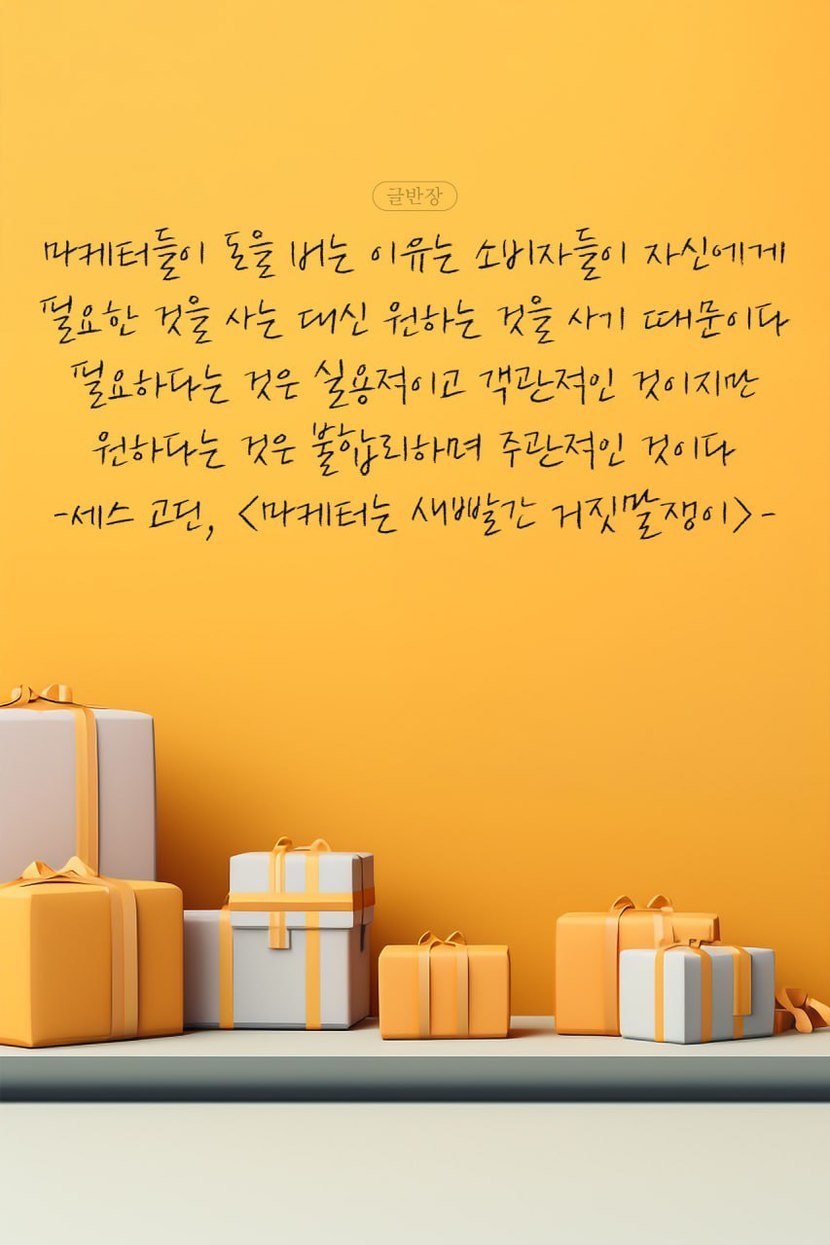 글반장
마케터들이 돈을 버는 이유는 소비자들이 자신에게
필요한 것을 사는 대신 원하는 것을 사기 때문이다
필요하다는 것은 실용적이고 객관적인 것이지만
원하다는 것은 불합리하며 주관적인 것이다
-세스 고딘, <마케터는 새빨간 거짓말쟁이>-